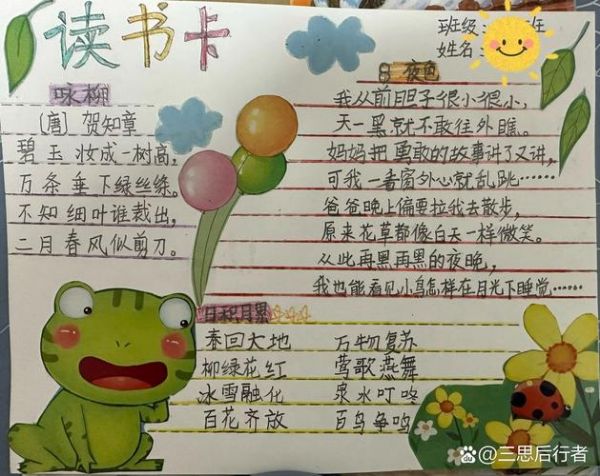 读书卡
班级： 班
姓名：
咏柳
〔唐〕贺知章
碧玉妆成一树高，
万条垂下绿丝绦。
不知细叶谁裁出，
二月春风似剪刀。
8 夜色
我从前胆子很小很小，
天一黑就不敢往外瞧。
妈妈把勇敢的故事讲了又讲，
可我一看窗外心就乱跳……
爸爸晚上偏要拉我去散步，
原来花草都像白天一样微笑。
从此再黑再黑的夜晚，
我也能看见小鸟怎样在月光下睡觉……
日积月累
春回大地 万物复苏
柳绿花红 莺歌燕舞
冰雪融化 泉水叮咚
百花齐放 百鸟争鸣
Bai du @三思后行者